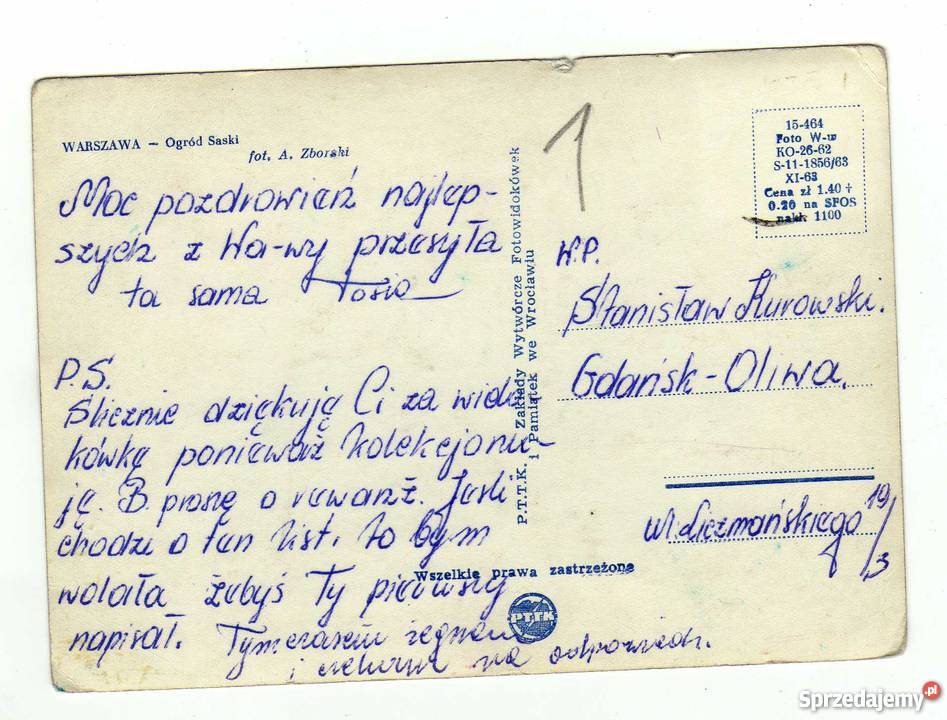 WARSZAWA — Ogród Saski
fot. A. Zborski
Moc pozdrowień najlep-
szych z Wa-wy przesyła
ta sama Tosia
P.S.
Ślicznie dziękuję Ci za wido
kówkę ponieważ kolekcjonu-
ję. B. proszę o rewanż. Jeśli
chodzi o ten list. to bym
wolała żebyś Ty pierwszy
napisał. Tymczasem żegnam
i czekam na odpowiedź.
P.T.T.K. Zakłady Wytwórcze Fotowidokówek
i Pamiątek we Wrocławiu
Wszelkie prawa zastrzeżone
PTTK
1
15-464
Foto W-w
KO-26-62
S-11-1856/63
XI-63
Cena zł 1.40 +
0.20 na SFOS
nakł. 1100
W.P.
Stanisław Kurowski.
Gdańsk-Oliwa.
ul. 19/3
Sprzedajemy.pl